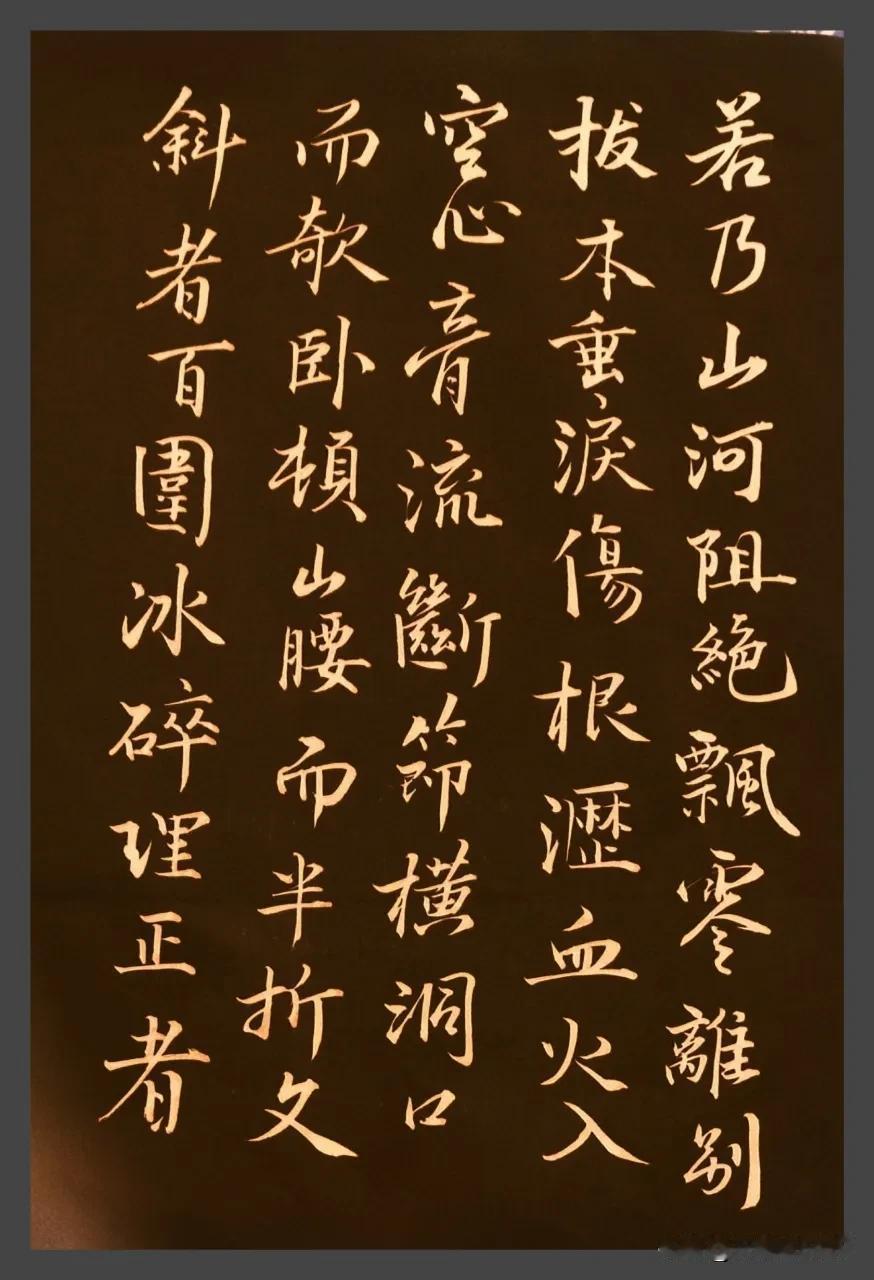 若乃山河阻絕飄零離別
拔本垂淚傷根瀝血火入
空心膏流斷節橫洞口
而欹卧頓山腰而半折文
斜者百圍冰碎理正者